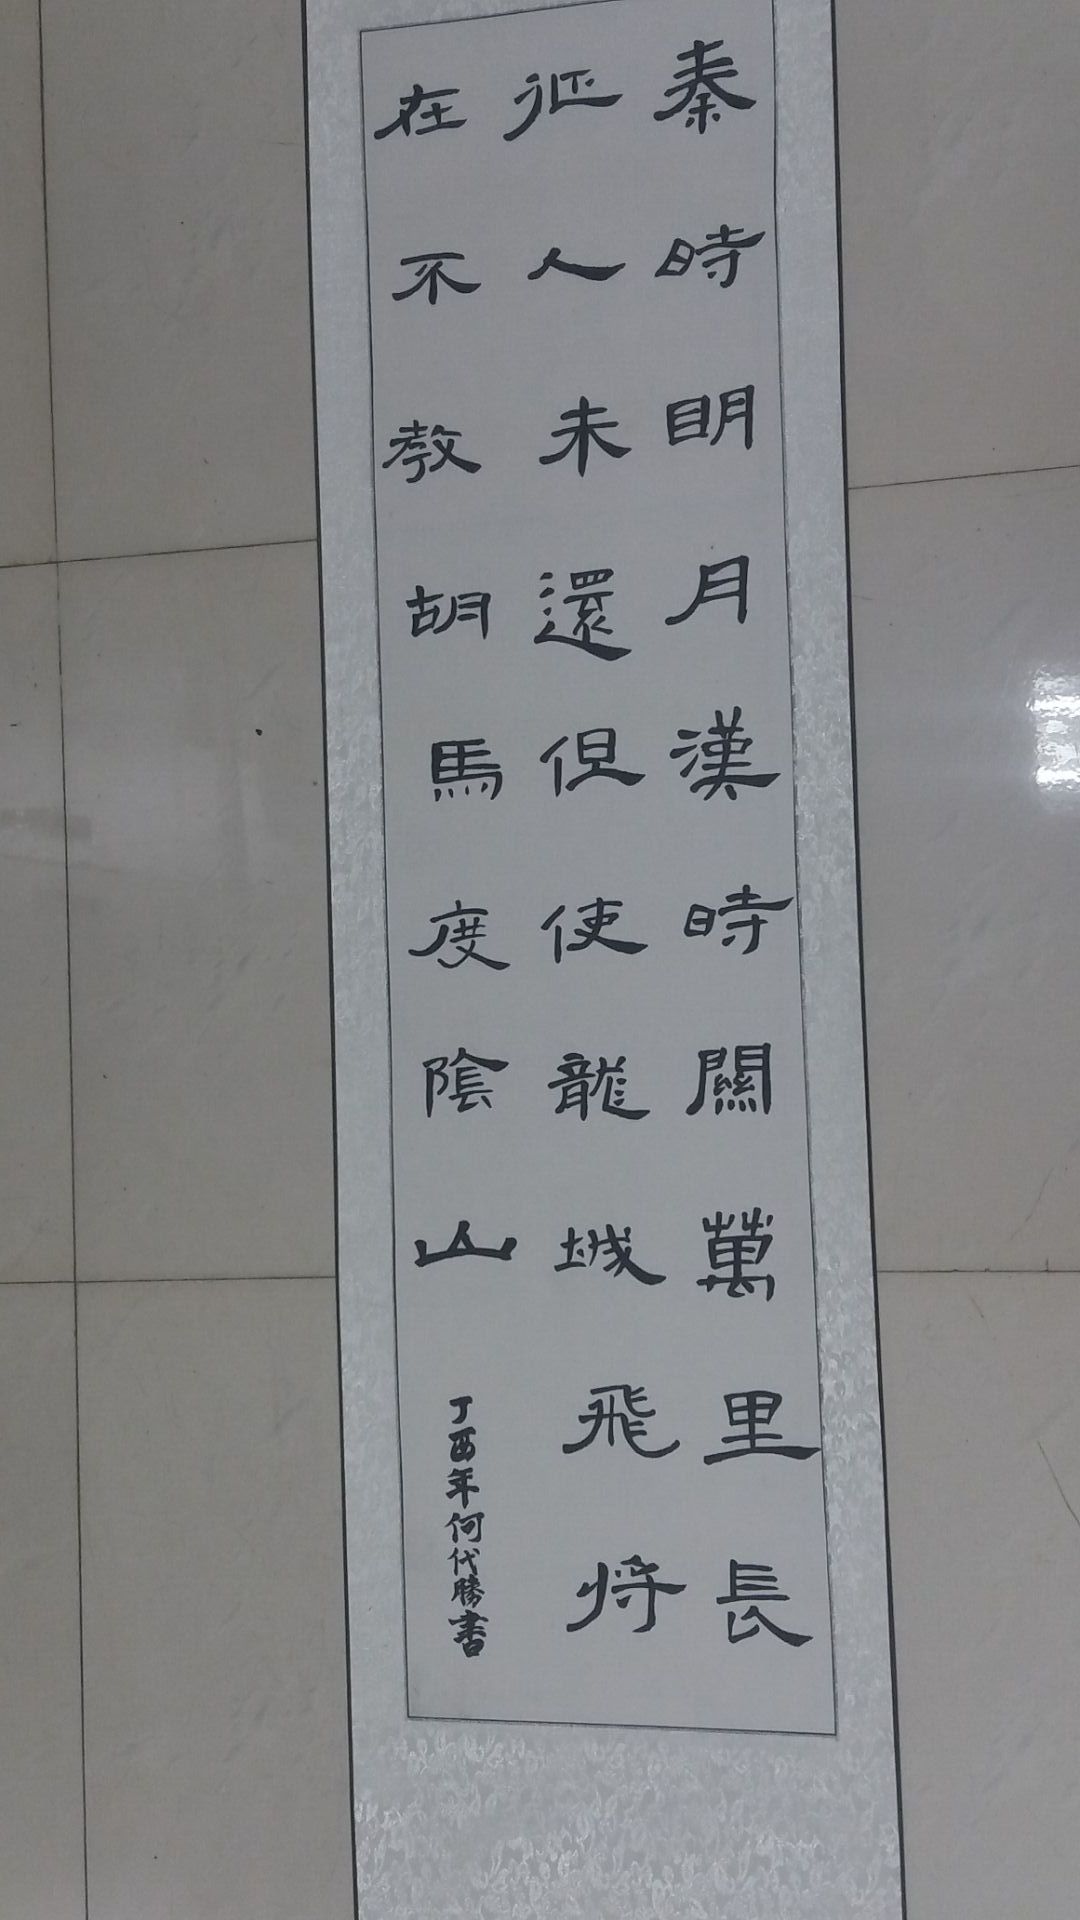 秦時明月漢時關萬里長
征人未還但使龍城飛將
在不教胡馬度陰山
丁酉年何代勝書